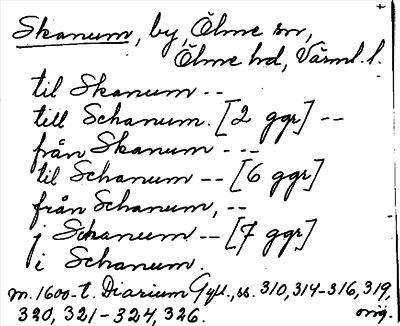 Skanum, by, Ölme sn,
Ölme hd, Värml. l.
til Skanum --
till Schanum. [2 ggr] --
från Skanum ---
til Schanum -- [6 ggr]
från Schanum, --
j Schanum -- [7 ggr]
i Schanum.
m. 1600-t. Diarium Gyll., ss. 310, 314-316, 319,
320, 321-324, 326. orig.